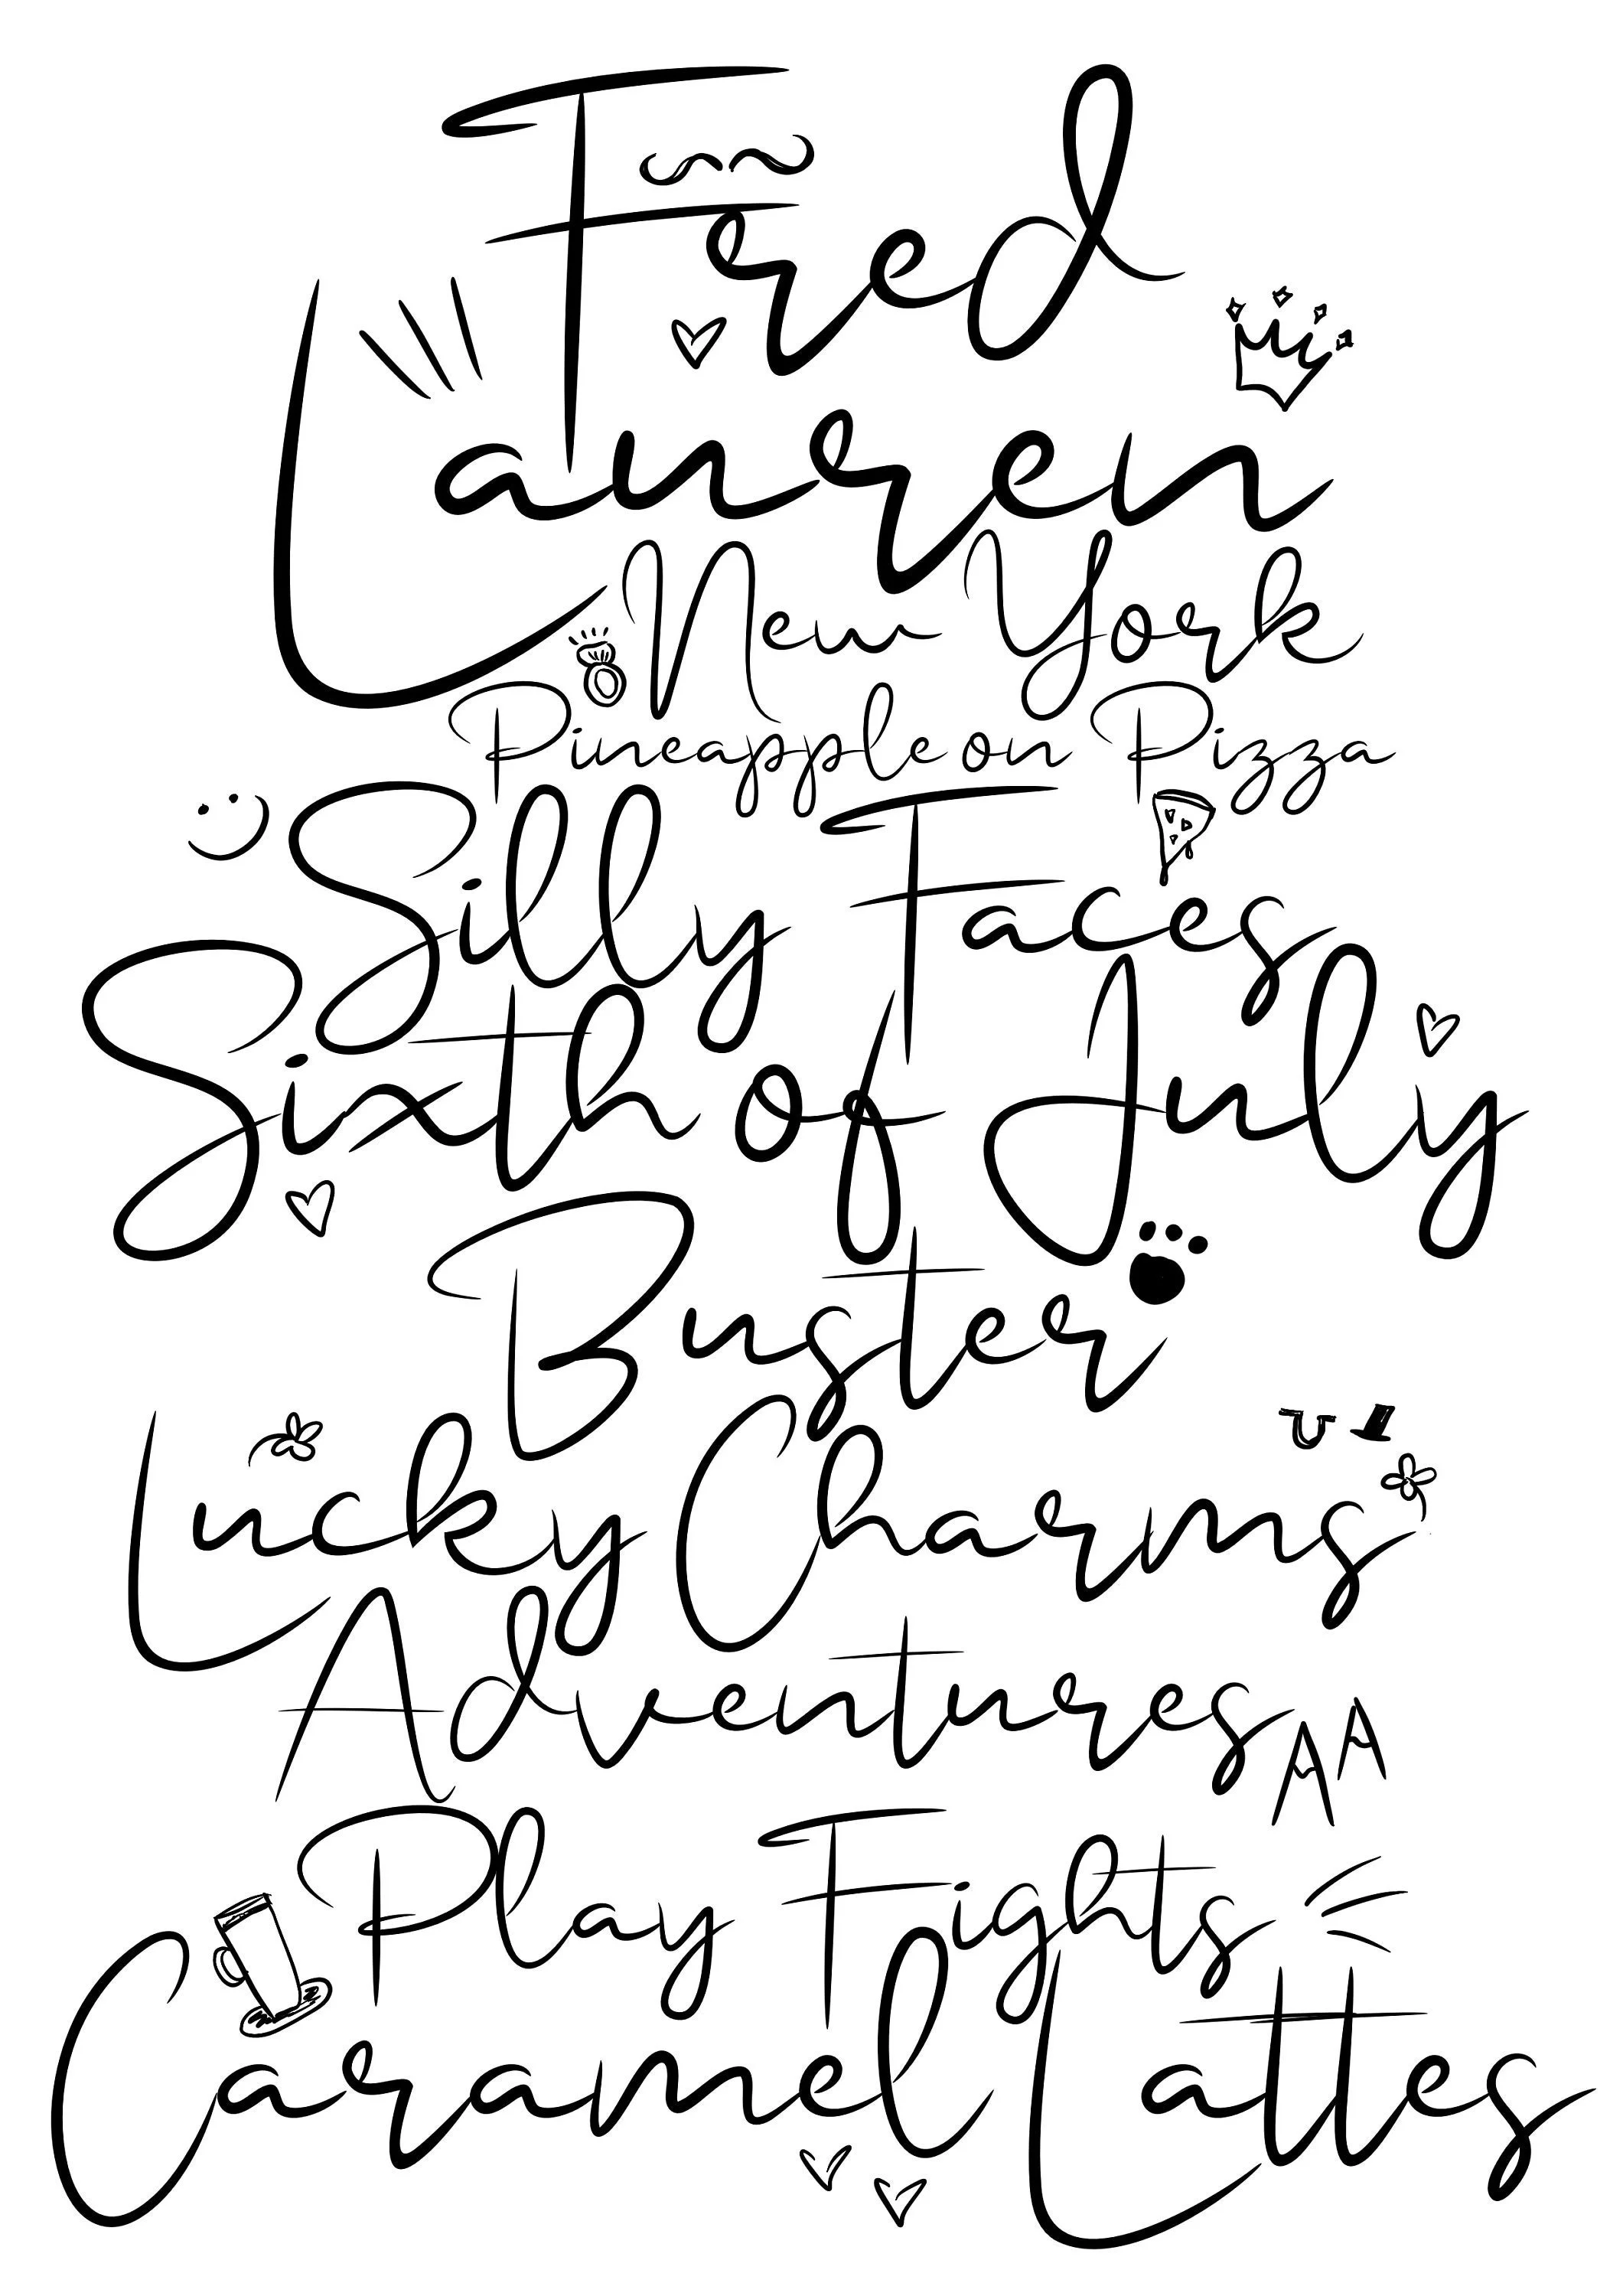 Fred
Lauren
New York
Pineapple on Pizza
Silly Faces
Sixth of July
Buster
Lucky Charms
Adventures
Play Fights
Caramel Lattes